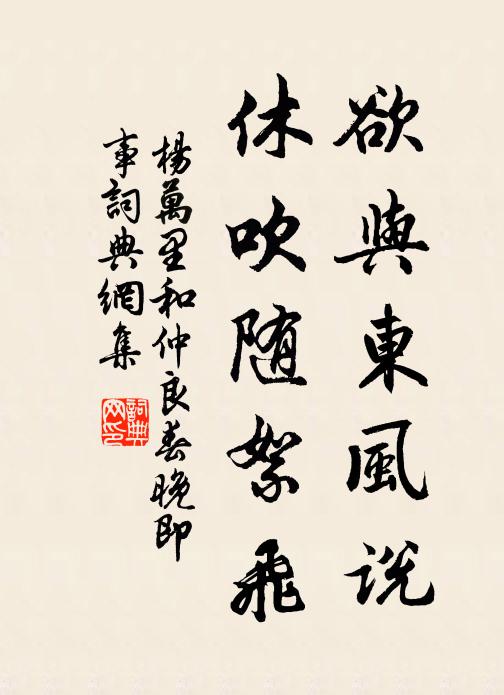 欲與東風說
休吹随絮飛
楊萬里和仲良春晚即
事詞典網集
詞典
网印